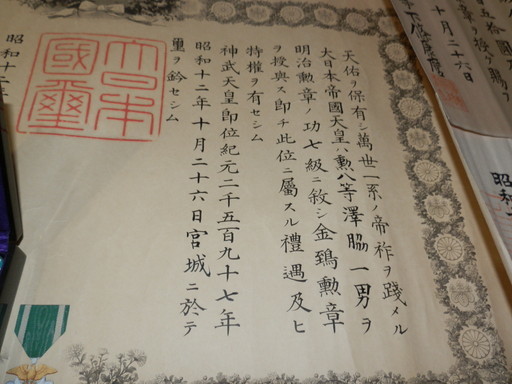 天佑ヲ保有シ萬世一系ノ帝祚ヲ踐メル
大日本帝國天皇ハ勲八等澤脇一男ヲ
明治勲章ノ功七級ニ敘シ金鵄勲章
ヲ授與ス即チ此位ニ屬スル禮遇及ヒ
特權ヲ有セシム
神武天皇即位紀元二千五百九十七年
昭和十二年十月二十六日宮城ニ於テ
璽ヲ鈐セシム
昭和十二
大日本國璽
十月二十六日
昭和